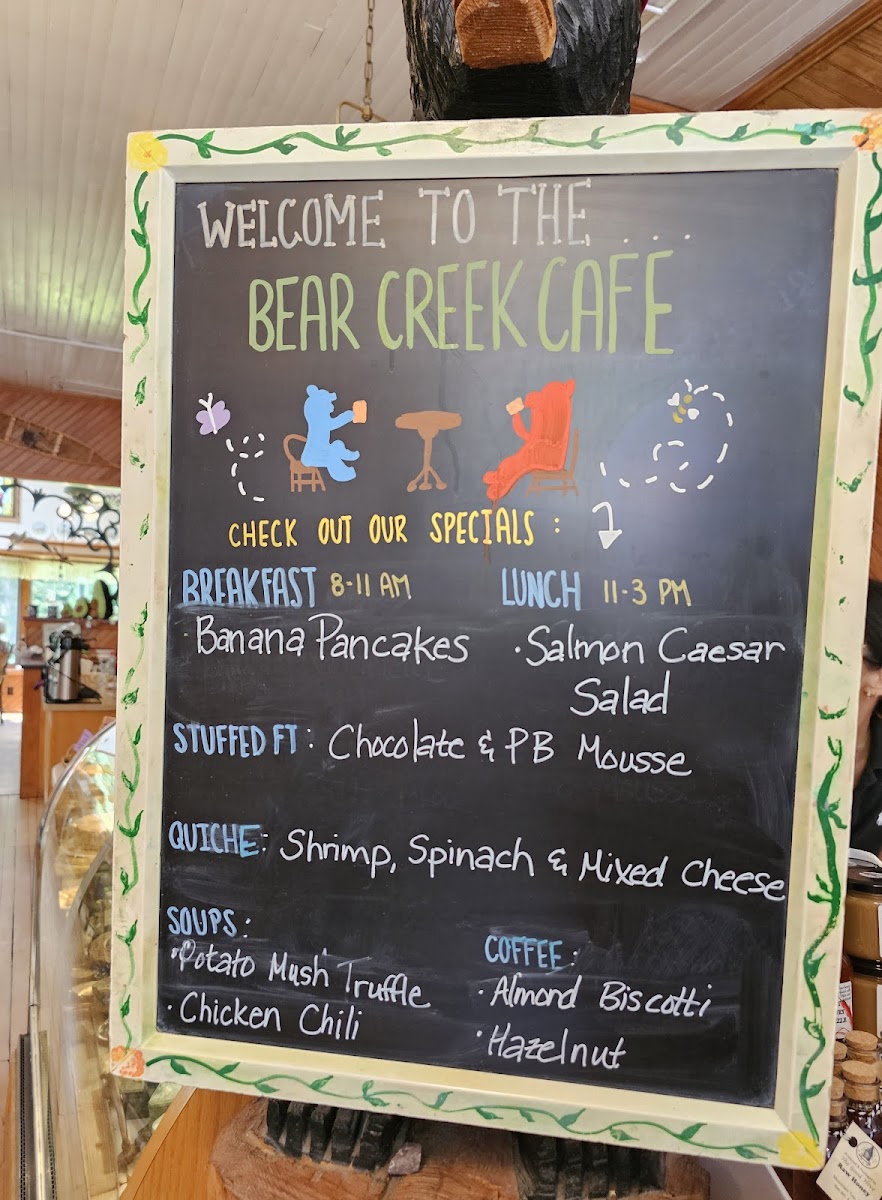 WELCOME TO THE ...
BEAR CREEK CAFE
CHECK OUT OUR SPECIALS :
BREAKFAST 8-11 AM
· Banana Pancakes
LUNCH 11-3 PM
· Salmon Caesar
Salad
STUFFED FT : Chocolate & PB Mousse
QUICHE: Shrimp, Spinach & Mixed Cheese
SOUPS:
· Potato Mush Truffle
· Chicken Chili
COFFEE:
· Almond Biscotti
· Hazelnut
Raw Honey